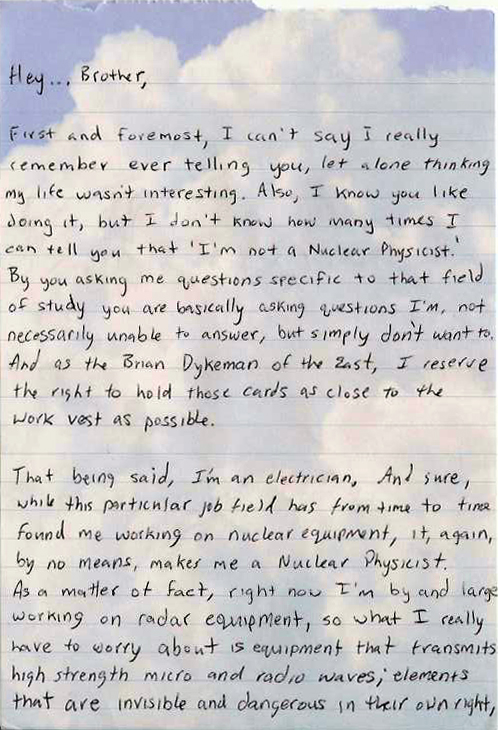 Hey... Brother,
First and foremost, I can't say I really
remember ever telling you, let alone thinking
my life wasn't interesting. Also, I know you like
doing it, but I don't know how many times I
can tell you that 'I'm not a Nuclear Physicist.'
By you asking me questions specific to that field
of study you are basically asking questions I'm, not
necessarily unable to answer, but simply don't want to.
And as the Brian Dykeman of the East, I reserve
the right to hold those cards as close to the
work vest as possible.
That being said, I'm an electrician. And sure,
while this particular job field has from time to time
found me working on nuclear equipment, it, again,
by no means, makes me a Nuclear Physicist.
As a matter of fact, right now I'm by and large
working on radar equipment, so what I really
have to worry about is equipment that transmits
high strength micro and radio waves; elements
that are invisible and dangerous in their own right,